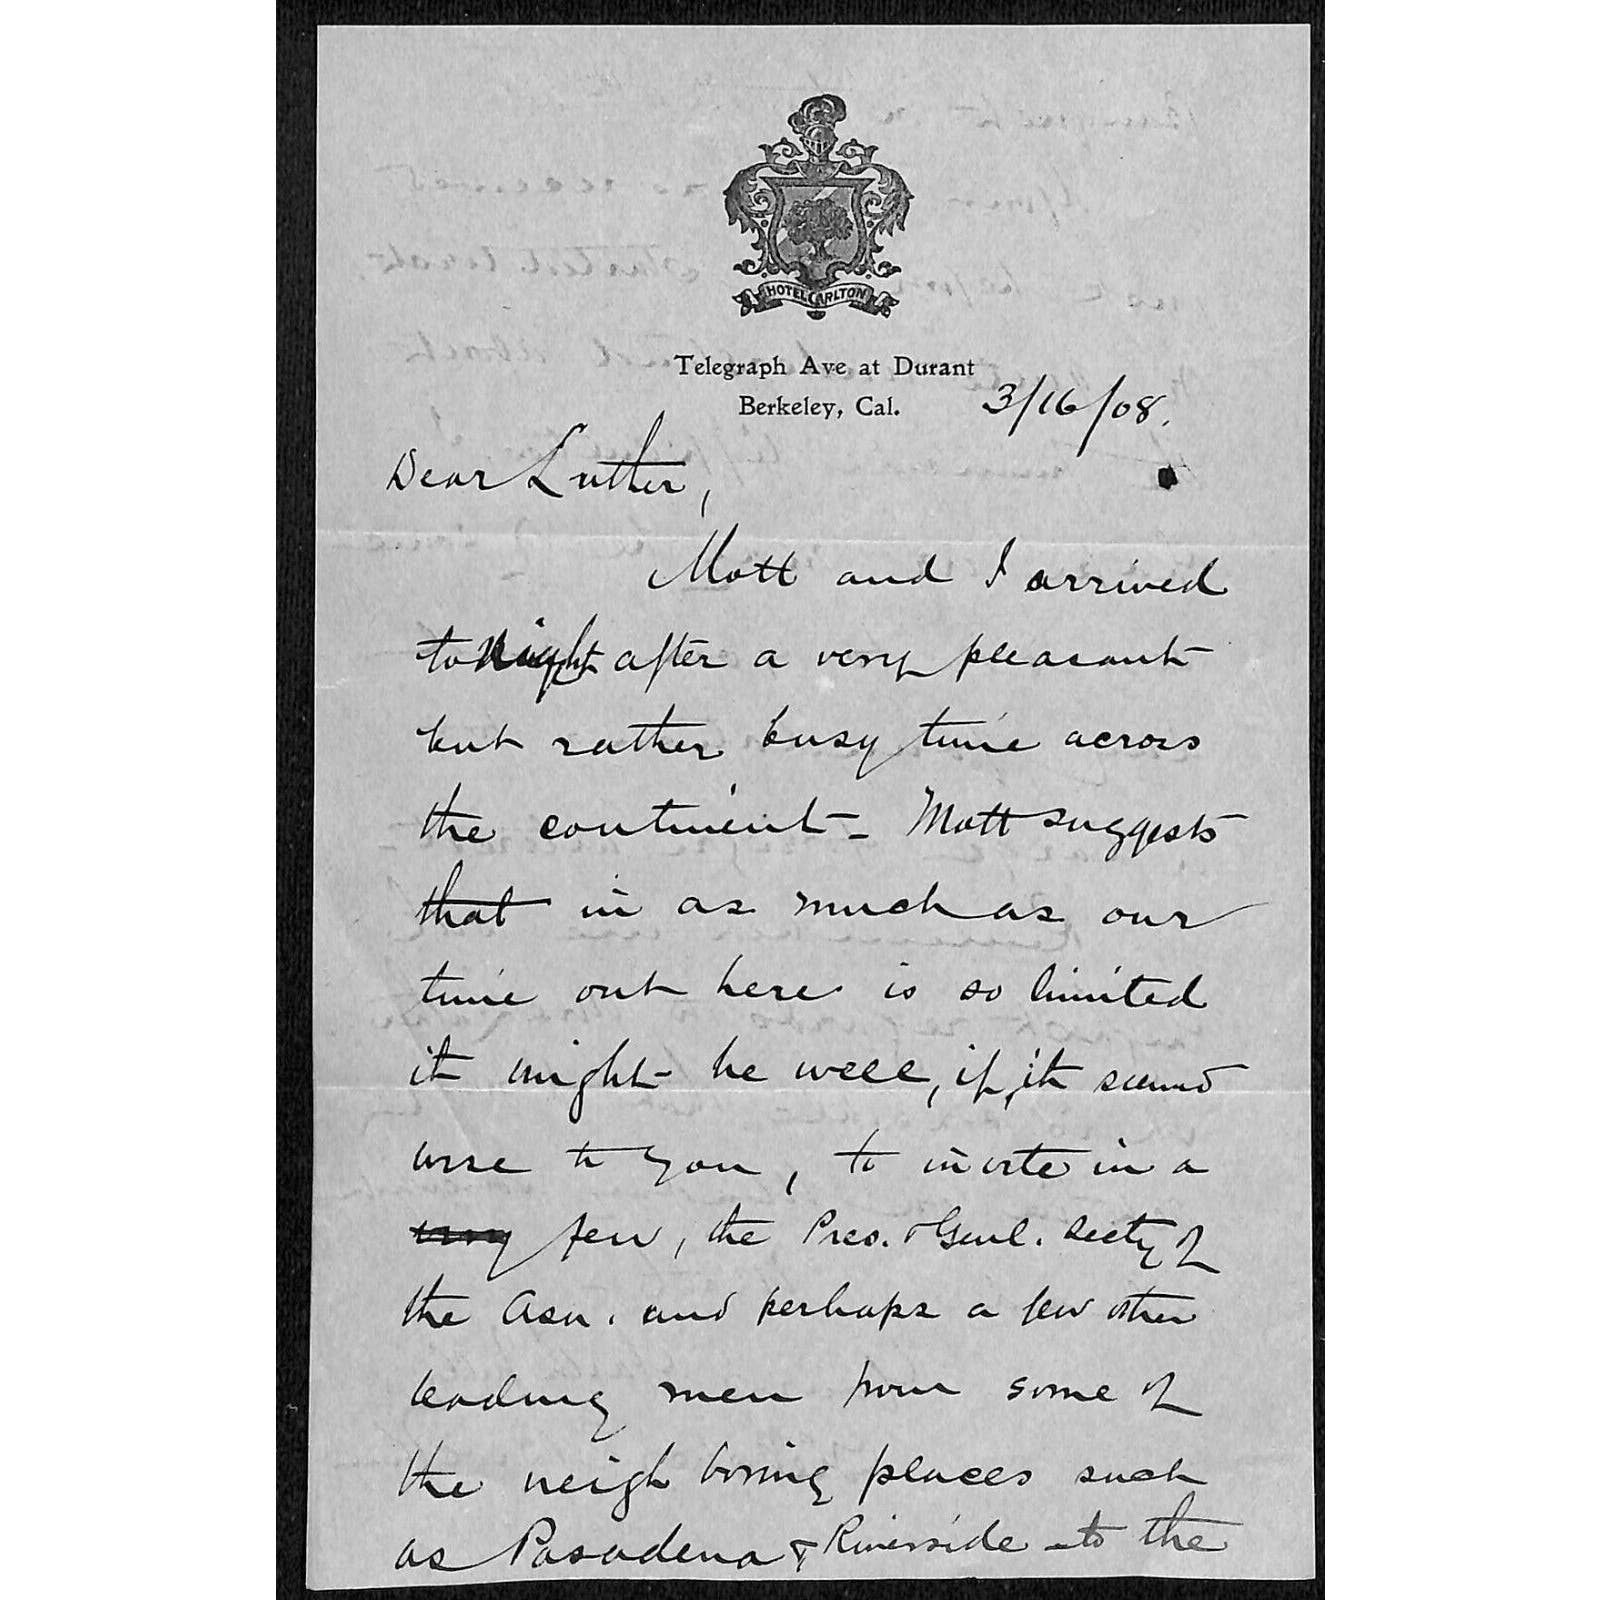 HOTEL CARLTON
Telegraph Ave at Durant
Berkeley, Cal. 3/16/08.
Dear Luther,
Mott and I arrived
tonight after a very pleasant
but rather busy time across
the continent - Mott suggests
that in as much as our
time out here is so limited
it might be well, if, it seems
wise to you, to invite in a
few, the Pres. & Genl. Secty of
the Asn. and perhaps a few other
leading men from some of
the neigh boring places such
as Pasadena & Riverside - to the